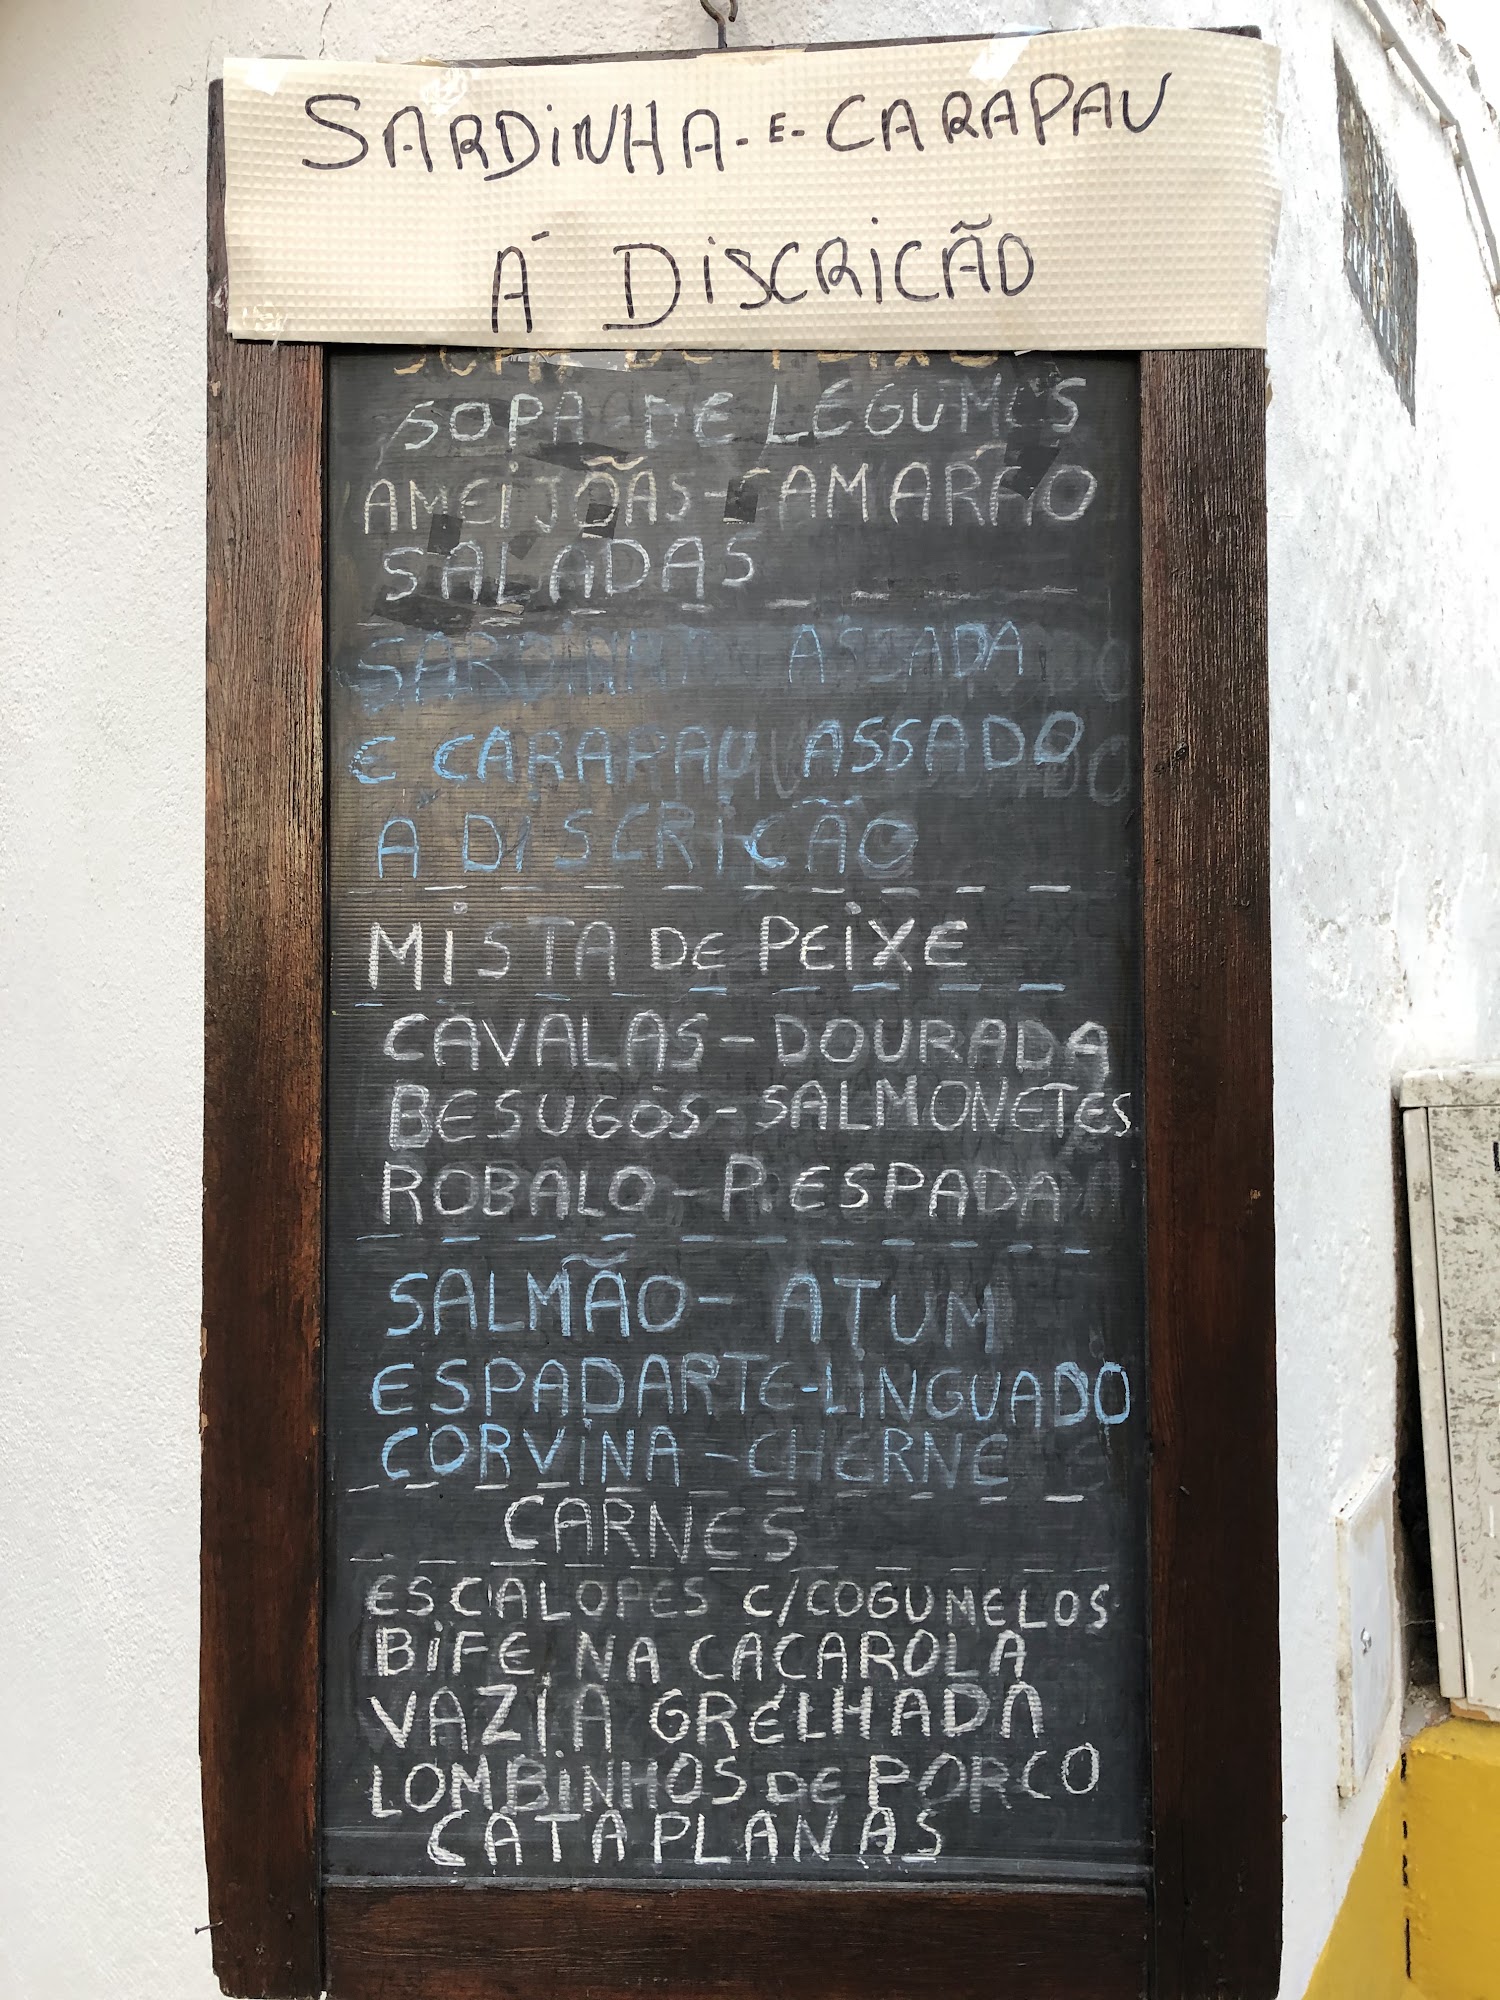 SARDINHA-E-CARAPAU
Á DISCRICÃO
SOPA DE PEIXE
SOPA DE LEGUMES
AMEIJOÃS-CAMARÃO
SALADAS
SARDINHA ASSADA
E CARAPAU ASSADO
A DISCRICÃO
MISTA DE PEIXE
CAVALAS-DOURADA
BESUGOS-SALMONETES
ROBALO-P.ESPADA
SALMÃO-ATUM
ESPADARTE-LINGUADO
CORVINA-CHERNE
CARNES
ESCALOPES C/COGUMELOS
BIFE NA CAÇAROLA
VAZIA GRELHADA
LOMBINHOS DE PORCO
CATAPLANAS